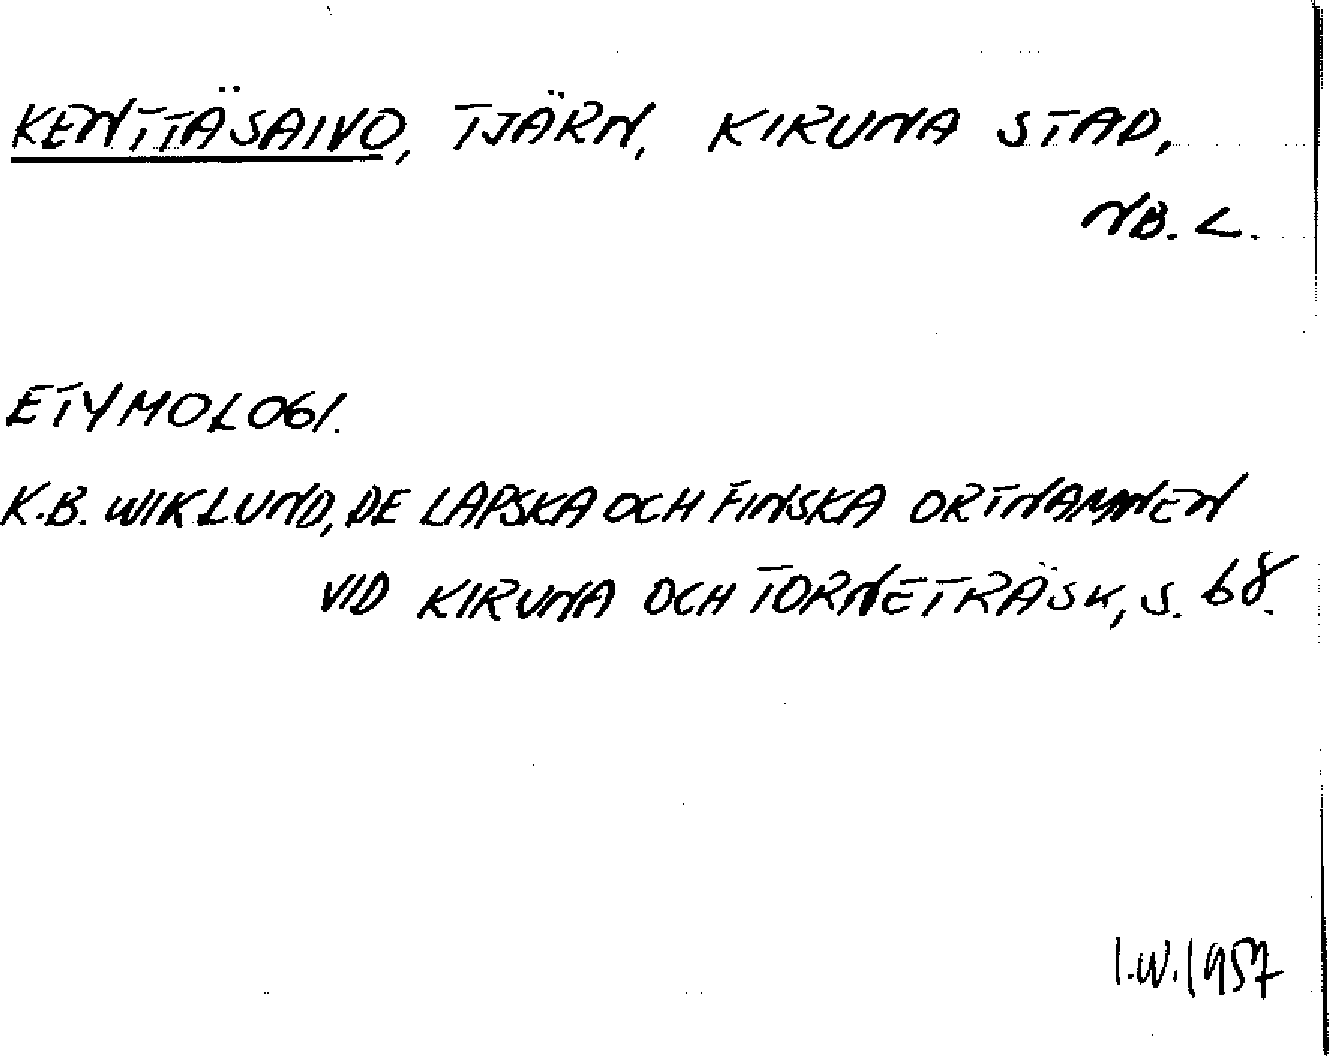 KENTTÄSAIVO, TJÄRN, KIRUNA STAD,
NB. L.
ETYMOLOGI.
K.B. WIKLUND, DE LAPSKA OCH FINSKA ORTNAMNEN
VID KIRUNA OCH TORNETRÄSK, S. 68.
I.W. 1957